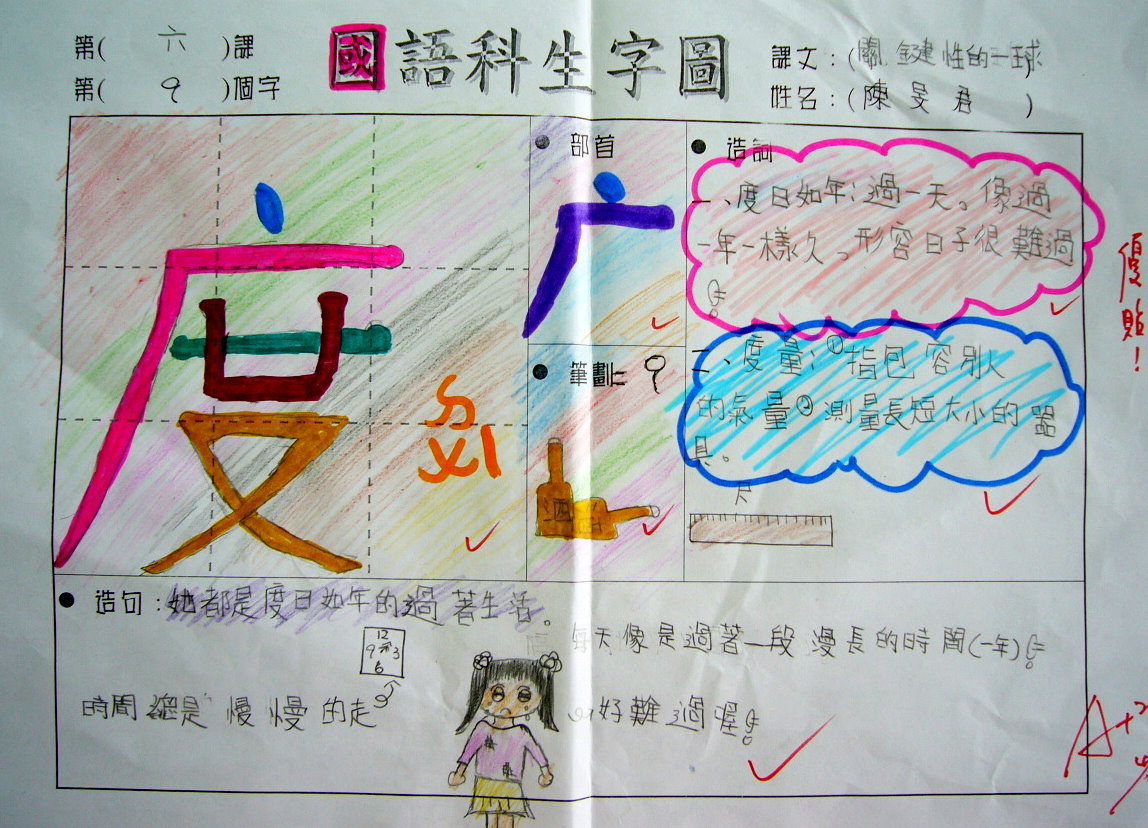 第( 六 )課
國語科生字圖
課文:(關鍵性的一球
第( 9 )個字
姓名:(陳旻君 )
度
ㄉㄨˋ
部首
广
筆劃: 9
酒
造詞
一、度日如年:過一天。像過
一年一樣久。形容日子很難過
二、度量:①指包容別人
的氣量②測量長短大小的器
具。
尺
優
貼!
造句:她都是度日如年的過著生活。
每天像是過著一段漫長的時間(一年)
12
9 3
6
時間總是慢慢的走
好難過喔
A+2